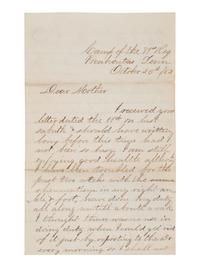 Camp of the 7th Reg
Pocahontas Tenn
October 20th /63
Dear Mother
I received your
letter dated the 11th on last
sabath & should have written
long before this time had I
not been so busy. I am still
enjoying good health although
I have been troubled for the
past two weeks with
rheumatism in my right
& foot, have done my duty
all along until about a week
I thought I was no use in
doing duty when I could get out
of it just by reporting to the dr
every morning so I shall not